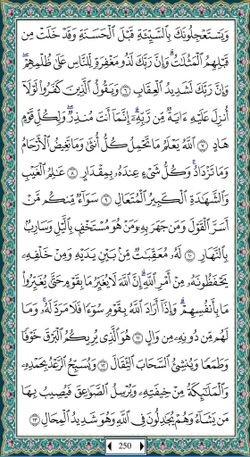 وَيَسْتَعْجِلُونَكَ بِالسَّيِّئَةِ قَبْلَ الْحَسَنَةِ وَقَدْ خَلَتْ مِن
قَبْلِهِمُ الْمَثُلَاتُ ۗ وَإِنَّ رَبَّكَ لَذُو مَغْفِرَةٍ لِّلنَّاسِ عَلَىٰ ظُلْمِهِمْ ۖ
وَإِنَّ رَبَّكَ لَشَدِيدُ الْعِقَابِ ٦ وَيَقُولُ الَّذِينَ كَفَرُوا لَوْلَا
أُنزِلَ عَلَيْهِ ءَايَةٌ مِّن رَّبِّهِ ۗ إِنَّمَا أَنتَ مُنذِرٌ ۖ وَلِكُلِّ قَوْمٍ
هَادٍ ٧ اللَّهُ يَعْلَمُ مَا تَحْمِلُ كُلُّ أُنثَىٰ وَمَا تَغِيضُ الْأَرْحَامُ
وَمَا تَزْدَادُ ۖ وَكُلُّ شَيْءٍ عِندَهُ بِمِقْدَارٍ ٨ عَالِمُ الْغَيْبِ
وَالشَّهَادَةِ الْكَبِيرُ الْمُتَعَالِ ٩ سَوَاءٌ مِّنكُم مَّنْ
أَسَرَّ الْقَوْلَ وَمَن جَهَرَ بِهِ وَمَنْ هُوَ مُسْتَخْفٍ بِاللَّيْلِ وَسَارِبٌ
بِالنَّهَارِ ١٠ لَهُ مُعَقِّبَاتٌ مِّن بَيْنِ يَدَيْهِ وَمِنْ خَلْفِهِ
يَحْفَظُونَهُ مِنْ أَمْرِ اللَّهِ ۗ إِنَّ اللَّهَ لَا يُغَيِّرُ مَا بِقَوْمٍ حَتَّىٰ يُغَيِّرُوا
مَا بِأَنفُسِهِمْ ۗ وَإِذَا أَرَادَ اللَّهُ بِقَوْمٍ سُوءًا فَلَا مَرَدَّ لَهُ ۚ وَمَا
لَهُم مِّن دُونِهِ مِن وَالٍ ١١ هُوَ الَّذِي يُرِيكُمُ الْبَرْقَ خَوْفًا
وَطَمَعًا وَيُنشِئُ السَّحَابَ الثِّقَالَ ١٢ وَيُسَبِّحُ الرَّعْدُ بِحَمْدِهِ
وَالْمَلَائِكَةُ مِنْ خِيفَتِهِ وَيُرْسِلُ الصَّوَاعِقَ فَيُصِيبُ بِهَا
مَن يَشَاءُ وَهُمْ يُجَادِلُونَ فِي اللَّهِ وَهُوَ شَدِيدُ الْمِحَالِ ١٣
250